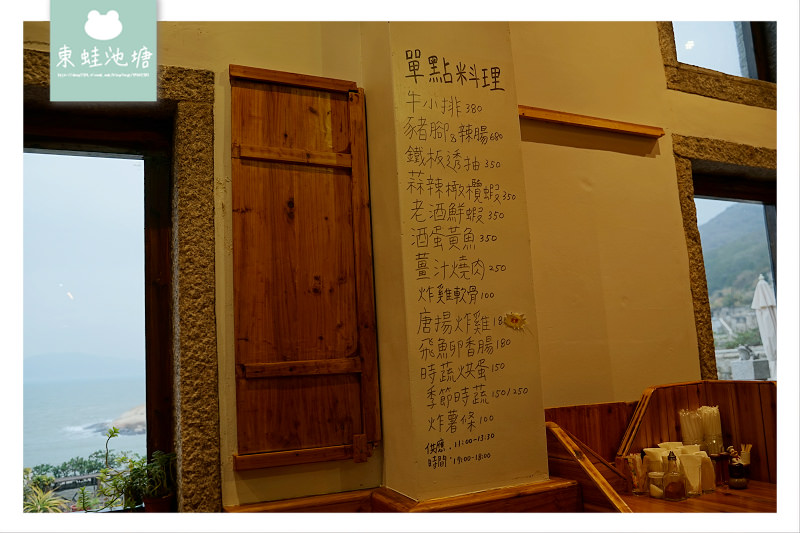 東蛙池塘
單點料理
牛小排 380
豬腳&辣腸 680
鐵板透抽 350
蒜辣橄欖蝦 350
老酒鮮蝦 350
酒蛋黃魚 350
薑汁燒肉 250
炸雞軟骨 100
唐揚炸雞 180
飛魚卵香腸 180
時蔬烘蛋 150
季節時蔬 150/250
炸薯條 100
供應: 11:00-13:30
時間: 17:00-18:00